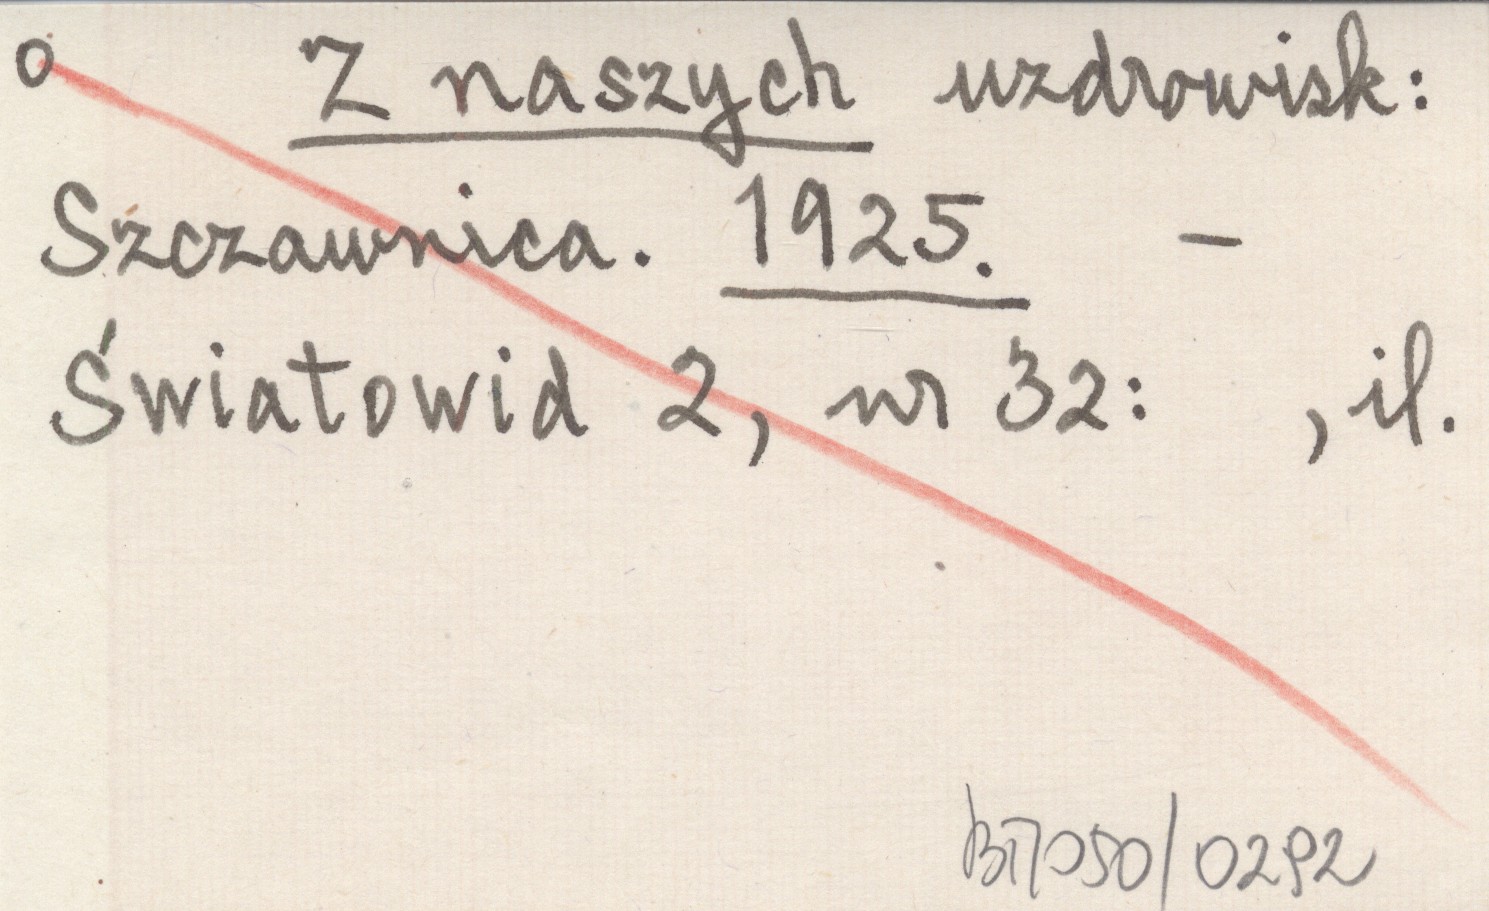 o Z naszych uzdrowisk:
Szczawnica. 1925. –
Światowid 2, nr 32: , il.
/0292